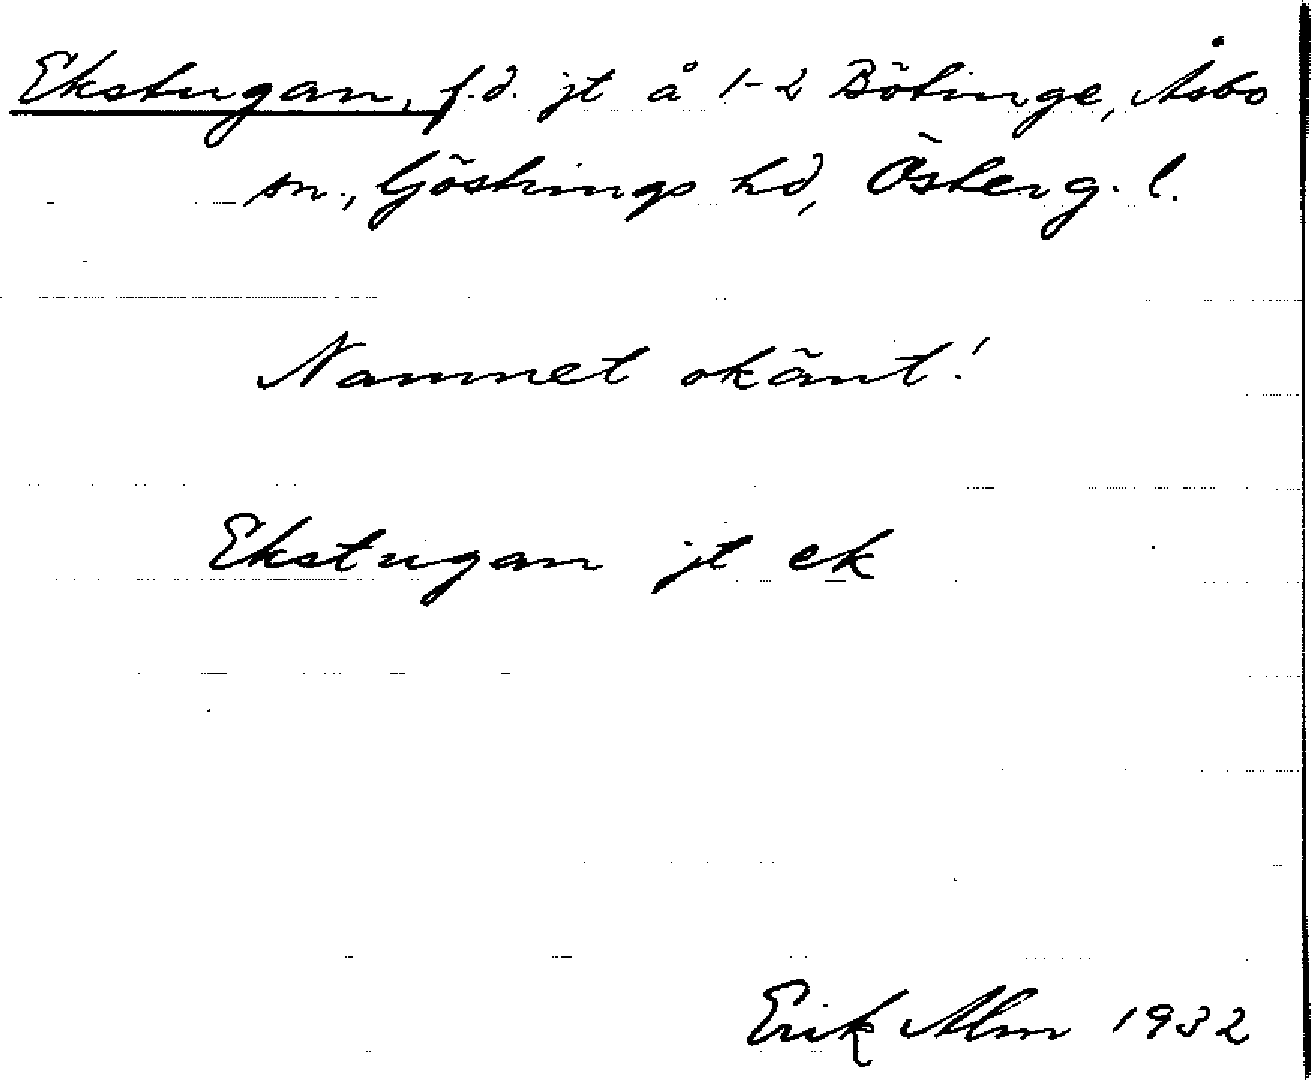 Ekstugan, f.d. jt å 1-2 Bötinge, Åsbo
sn., Göstrings hd, Österg. l.
Namnet okänt!
Ekstugan jt ek
Erik Alm 1932